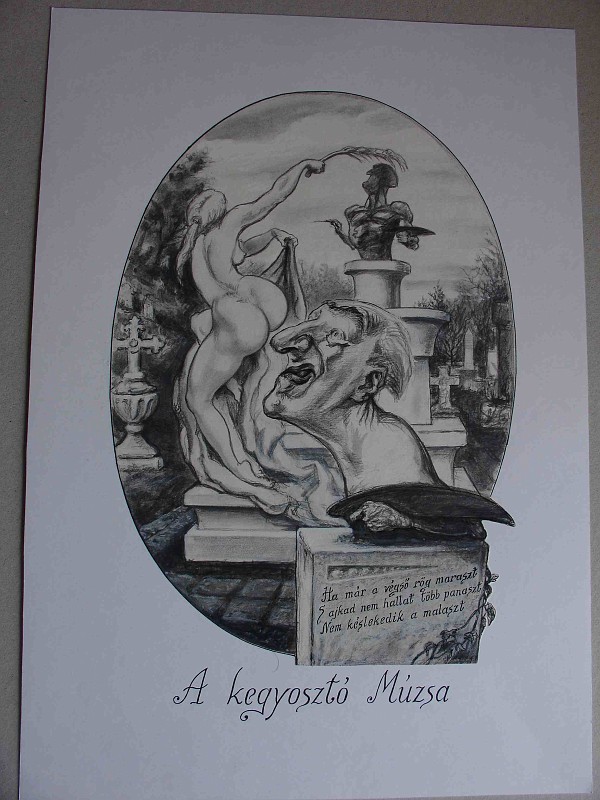 Ha már a végső rög maraszt
S ajkad nem hallat több panaszt
Nem késlekedik a malaszt
A kegyosztó Múzsa